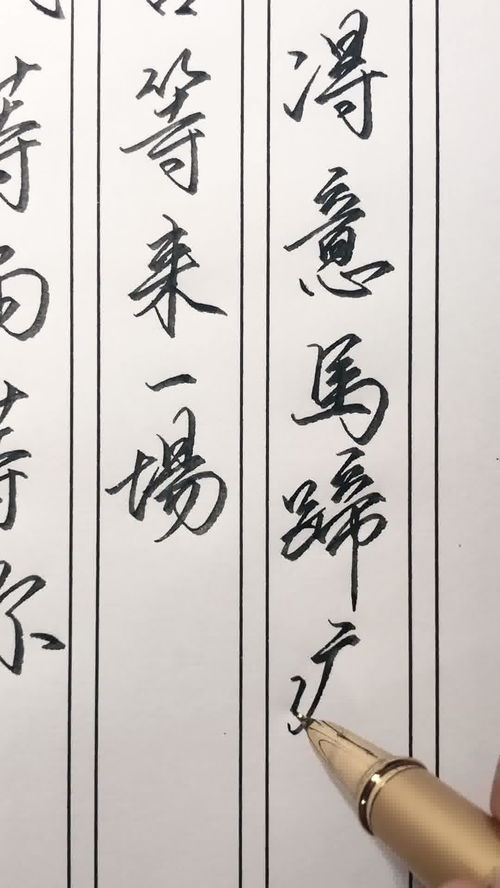 等雨等你
等来一場
得意馬蹄